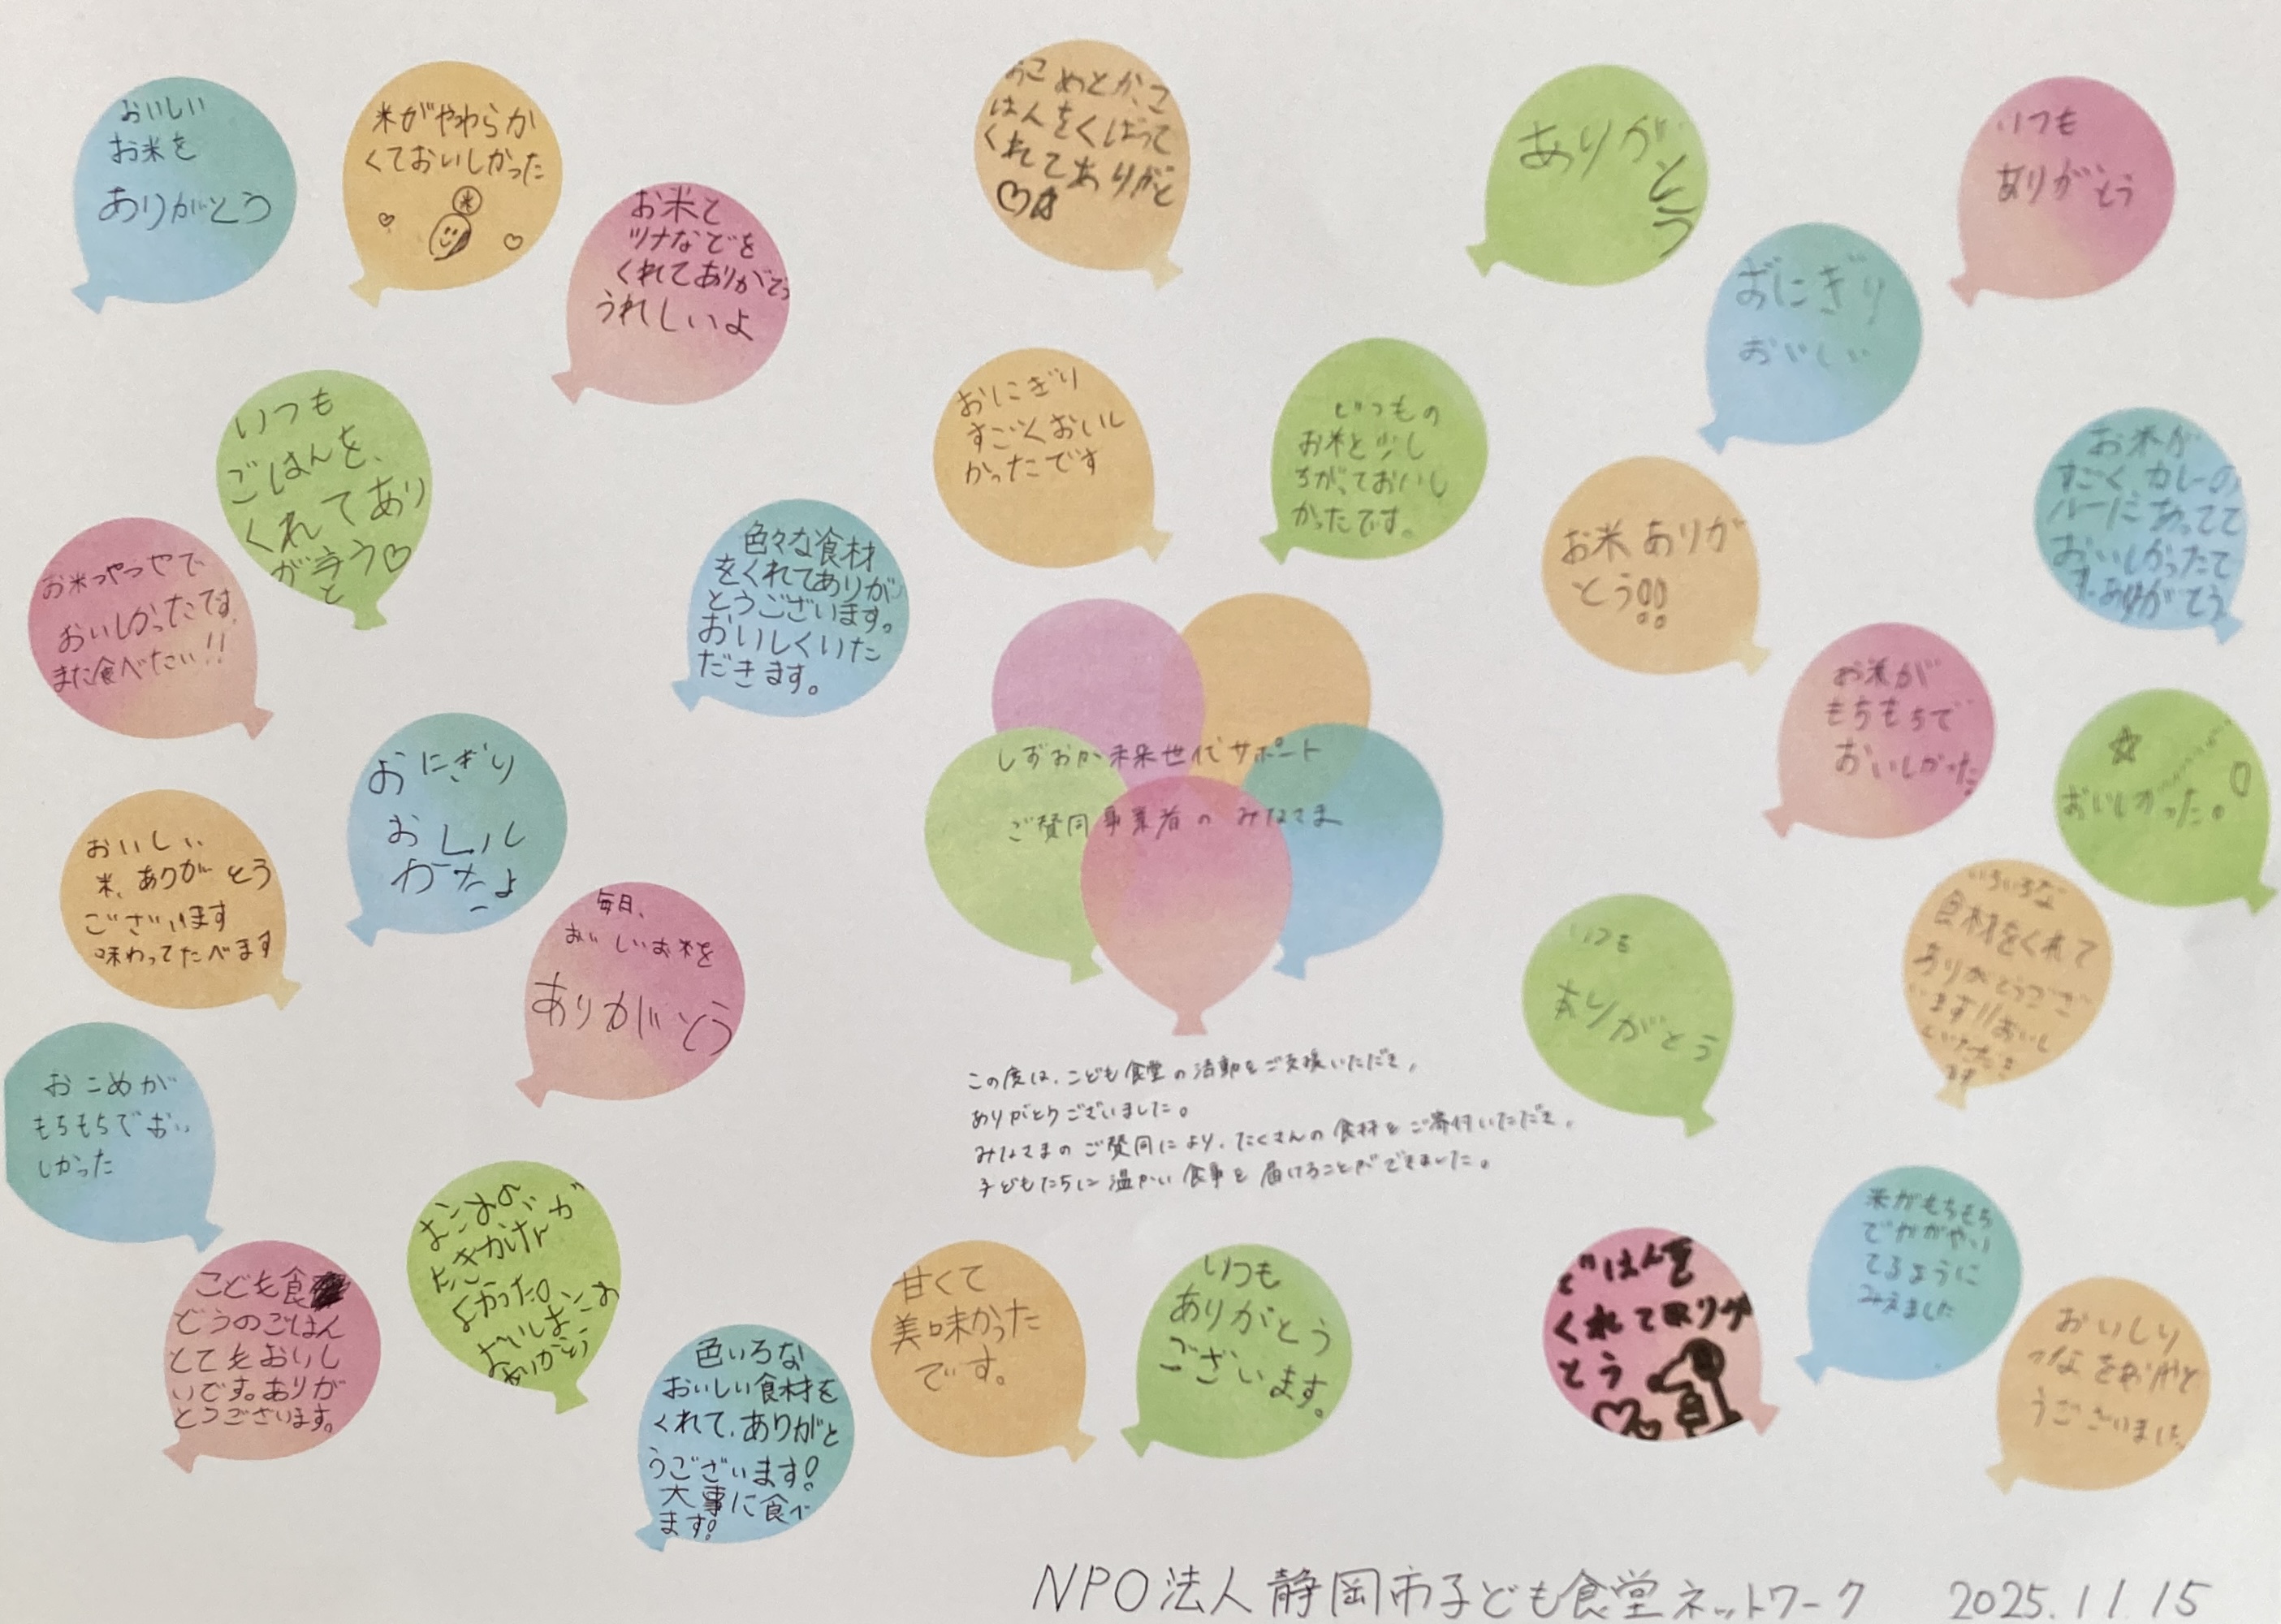 おいしい
お米を
ありがとう
米がやわらか
くておいしかった
米
お米と
ツナなどを
くれてありがとう
うれしいよ
おこめとか、ご
はんをくばって
くれてありがと
ありがとう
いつも
ありがとう
おにぎり
おいしい
いつも
ごはんを、
くれてあり
がとう♡
おにぎり
すごくおいし
かったです
いつもの
お米と少し
ちがっておいし
かったです。
お米が
すごくカレーの
ルーにあってて
おいしかったで
す。ありがとう
お米つやつやで、
おいしかったです。
また食べたい!!
色々な食材
をくれてありが
とうございます。
おいしくいた
だきます。
お米ありが
とう!!
お米が
もちもちで
おいしかった
おいしかった。
おにぎり
おしル
かたよ
しずおか未来世代サポート
ご賛同事業者のみなさま
おいしい
米、ありがとう
ございます
味わってたべます
毎日、
おいしいお米を
ありがとう
いつも
ありがとう
いろいろな
食材をくれて
ありがとうござ
います!!おいし
くいただき
ます
おこめが
もちもちでおい
しかった
この度は、こども食堂の活動をご支援いただき、
ありがとうございました。
みなさまのご賛同により、たくさんの食材をご寄付いただき、
子どもたちに温かい食事を届けることができました。
おこめの
たきかげんが
よかった。
ありがとう
こども食
どうのごはん
とてもおいし
いです。ありが
とうございます。
色いろな
おいしい食材を
くれて、ありがと
うございます!
大事に食べ
ます!
甘くて
美味かった
です。
いつも
ありがとう
ございます。
ごはんを
くれてありが
とう
米がもちもち
でかがやい
てるように
みえました
おいしい
ツナをありがと
うございました
NPO法人静岡市子ども食堂ネットワーク 2025.11.15